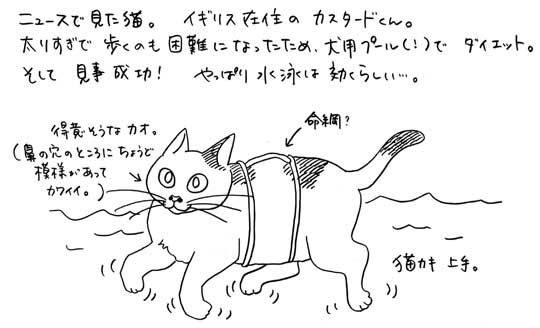 ニュースで見た猫。 イギリス在住の カスタードくん。
太りすぎで 歩くのも 困難になったため、犬用プール(!)で ダイエット。
そして 見事 成功! やっぱり 水泳は 効くらしい…。
命綱?
得意そうな カオ。
(鼻の穴のところに ちょうど
模様があって
カワイイ。)
猫カキ 上手。